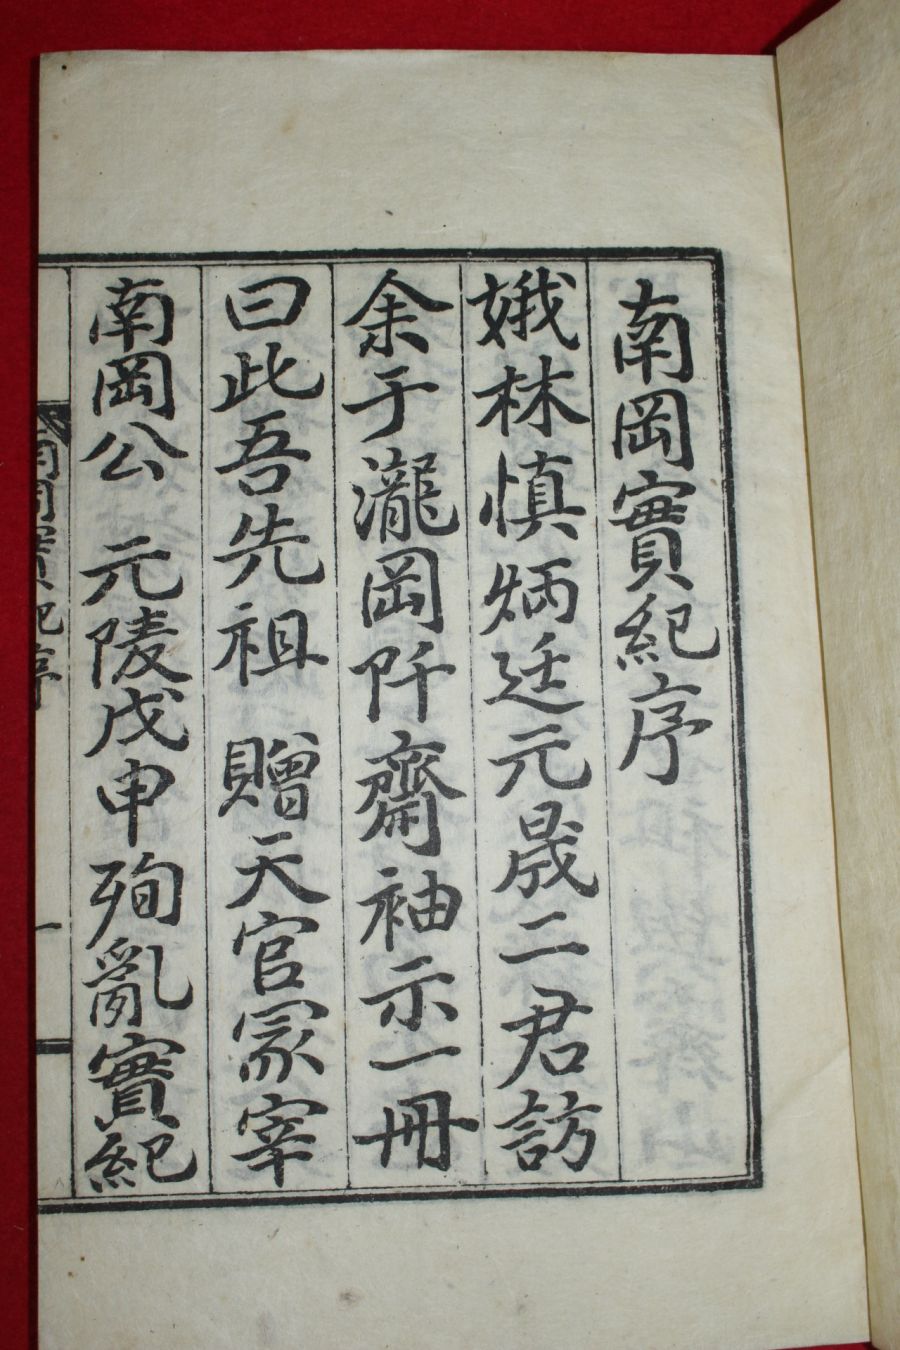 南岡實紀序
娥林慎炳廷元晟二君訪
余于瀧岡阡齋袖示一冊
曰此吾先祖 贈天官冢宰
南岡公 元陵戊申殉亂實紀
南岡實紀序 一